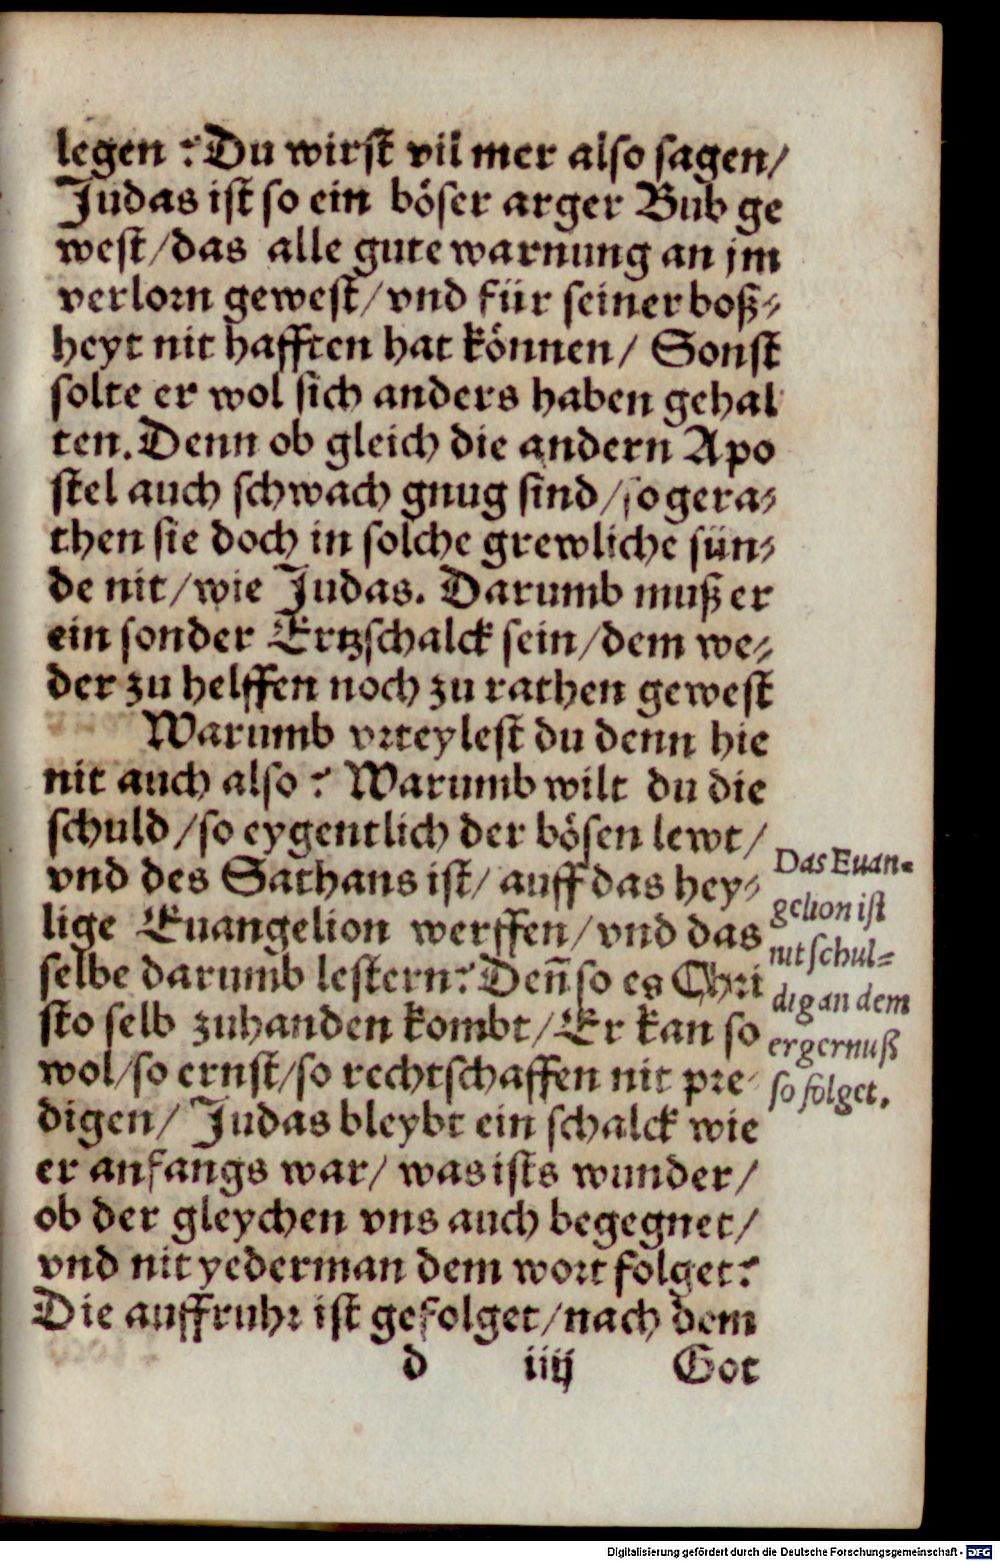 legen? Du wirst vil mer also sagen/
Judas ist so ein böser arger Bub ge
west/das alle gute warnung an jm
verlorn gewest/vnd für seiner boß⸗
heyt nit hafften hat können/ Sonst
solte er wol sich anders haben gehal
ten. Denn ob gleich die andern Apo
stel auch schwach gnug sind/so gera⸗
then sie doch in solche grewliche sün⸗
de nit/wie Judas. Darumb muß er
ein sonder Ertzschalck sein/dem we⸗
der zu helffen noch zu rathen gewest
Warumb vrteylest du denn hie
nit auch also? Warumb wilt du die
schuld/so eygentlich der bösen lewt/
vnd des Sathans ist/ auff das hey⸗
lige Euangelion werffen/vnd das
selbe darumb lestern? Deñ so es Chri
sto selb zuhanden kombt/Er kan so
wol/so ernst/so rechtschaffen nit pre⸗
digen/ Judas bleybt ein schalck wie
er anfangs war/ was ists wunder/
ob der gleychen vns auch begegnet/
vnd nit yederman dem wort folget?
Die auffruhr ist gefolget/nach dem
d iiij Got
Das Euan⸗
gelion ist
nit schul⸗
dig an dem
ergernuß
so folget.
Digitalisierung gefördert durch die Deutsche Forschungsgemeinschaft - DFG